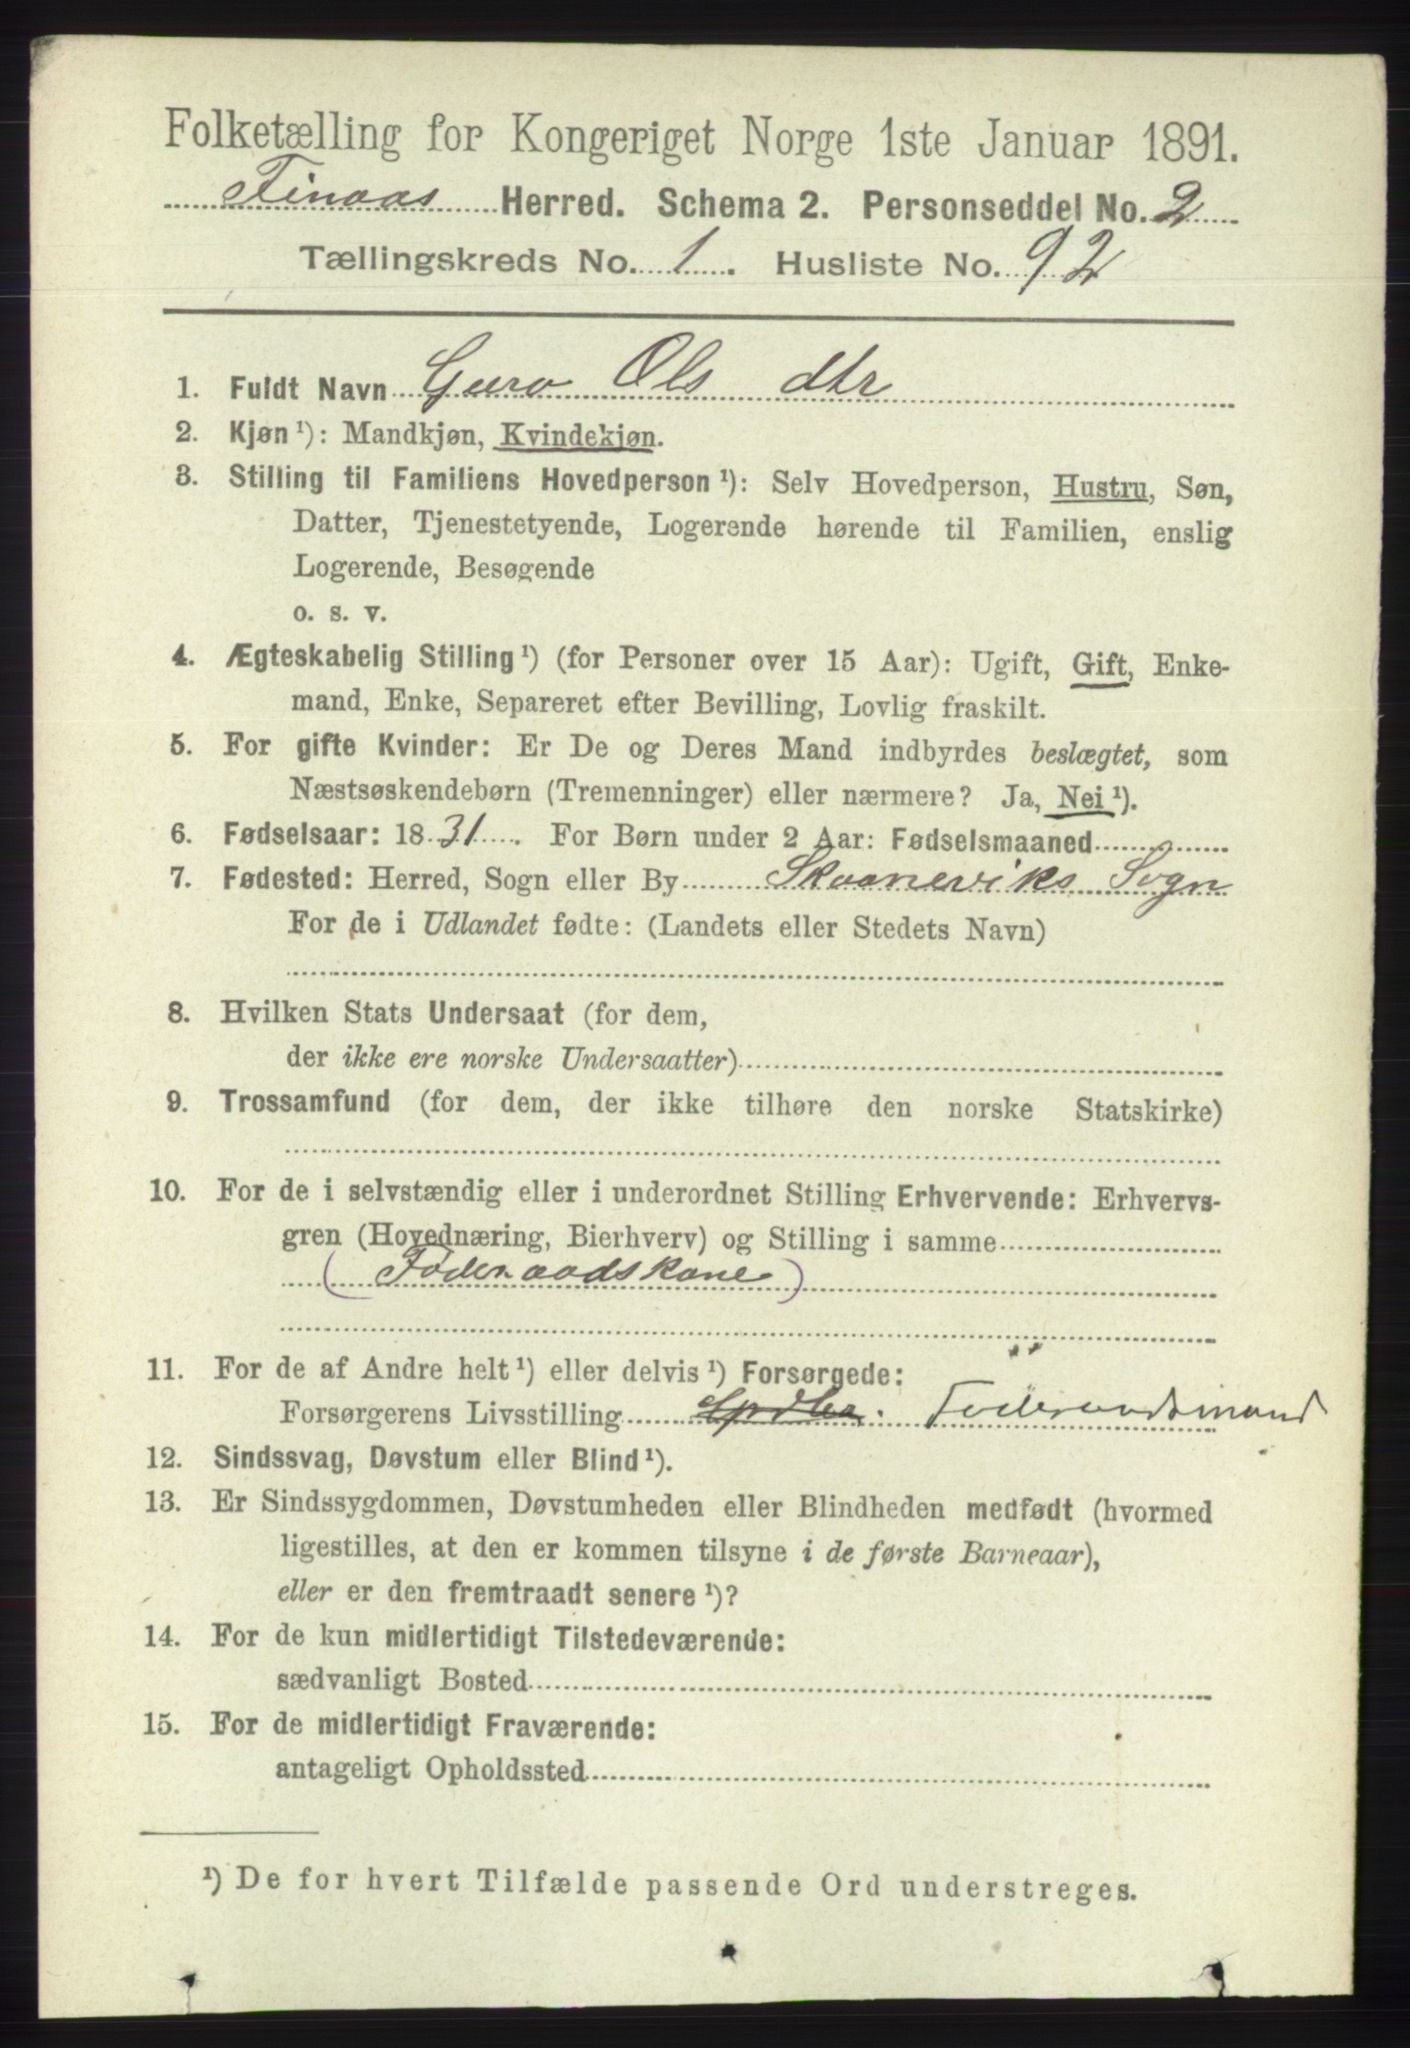 Folketælling for Kongeriget Norge 1ste Januar 1891.
Finaas Herred. Schema 2. Personseddel No. 2
Tællingskreds No. 1. Husliste No. 92
1. Fuldt Navn Guro Ols dtr
2. Kjøn ¹): Mandkjøn, Kvindekjøn.
3. Stilling til Familiens Hovedperson ¹): Selv Hovedperson, Hustru, Søn,
Datter, Tjenestetyende, Logerende hørende til Familien, enslig
Logerende, Besøgende
o. s. v.
4. Ægteskabelig Stilling ¹) (for Personer over 15 Aar): Ugift, Gift, Enke-
mand, Enke, Separeret efter Bevilling, Lovlig fraskilt.
5. For gifte Kvinder: Er De og Deres Mand indbyrdes beslægtet, som
Næstsøskendebørn (Tremenninger) eller nærmere? Ja, Nei ¹).
6. Fødselsaar: 1831. For Børn under 2 Aar: Fødselsmaaned
7. Fødested: Herred, Sogn eller By Skaaneviks Sogn
For de i Udlandet fødte: (Landets eller Stedets Navn)
8. Hvilken Stats Undersaat (for dem,
der ikke ere norske Undersaatter)
9. Trossamfund (for dem, der ikke tilhøre den norske Statskirke)
10. For de i selvstændig eller i underordnet Stilling Erhvervende: Erhvervs-
gren (Hovednæring, Bierhverv) og Stilling i samme
(Føderaadskone)
11. For de af Andre helt ¹) eller delvis ¹) Forsørgede:
Forsørgerens Livsstilling Føderaadsmand
12. Sindssvag, Døvstum eller Blind ¹).
13. Er Sindssygdommen, Døvstumheden eller Blindheden medfødt (hvormed
ligestilles, at den er kommen tilsyne i de første Barneaar),
eller er den fremtraadt senere ¹)?
14. For de kun midlertidigt Tilstedeværende:
sædvanligt Bosted
15. For de midlertidigt Fraværende:
antageligt Opholdssted
¹) De for hvert Tilfælde passende Ord understreges.